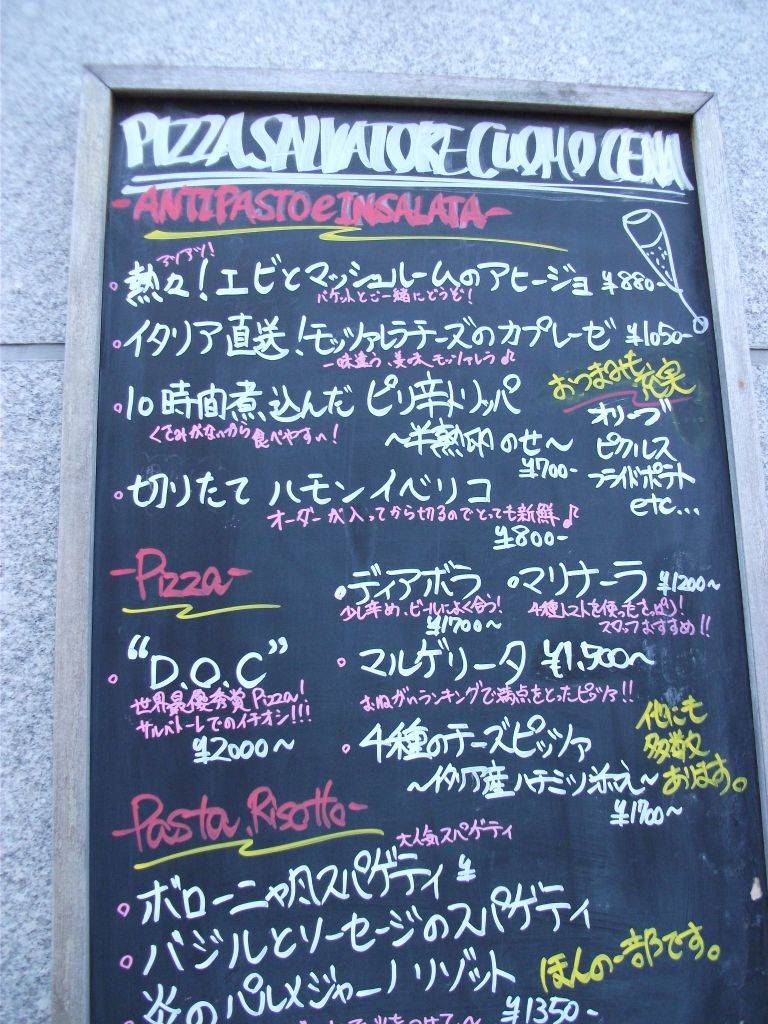 PIZZA SALVATORE CUOMO CENA
-ANTIPASTO e INSALATA-
アツアツ!
熱々!エビとマッシュルームのアヒージョ ¥880-
バケットとご一緒にどうぞ!
イタリア直送!モッツァレラチーズのカプレーゼ ¥1050-
一味違う、美味、モッツァレラ♪
10時間煮込んだ ピリ辛トリッパ
くさみがないから食べやすい!
〜半熟卵のせ〜
¥700-
おつまみも充実
オリーブ
ピクルス
フライドポテト
etc...
切りたて ハモンイベリコ
オーダーが入ってから切るのでとっても新鮮♪
¥800-
-Pizza-
ディアボラ
少し辛め、ビールによく合う!
¥1700〜
マリナーラ ¥1200〜
4種トマトを使ったさっぱり!
スタッフおすすめ!!
"D.O.C"
世界最優秀賞Pizza!
サルバトーレでのイチオシ!!!
¥2000〜
マルゲリータ ¥1,500〜
おねがいランキングで満点をとったピッツァ!!
4種のチーズピッツァ
〜イタリア産ハチミツ添え〜
¥1700〜
他にも
多数
あります。
-Pasta,Risotto-
大人気スパゲティ
ボローニャ風スパゲティ ¥
バジルとソーセージのスパゲティ
炎のパルメジャーノリゾット
¥1350-
ほんの一部です。